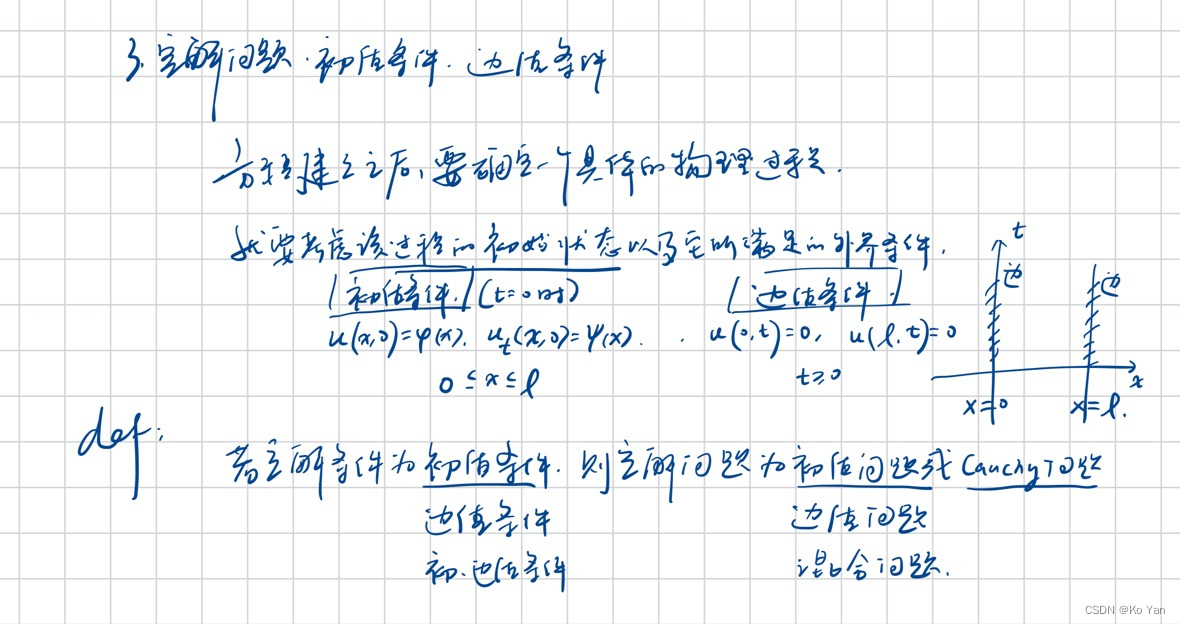 3. 定解问题. 初值条件. 边值条件
方程建立之后, 要确定一个具体的物理过程.
就要考虑该过程的初始状态以及它所满足的外界条件.
初值条件. (t=0时) 边值条件.
u(x,0)=φ(x). u_t(x,0)=ψ(x). u(0,t)=0, u(l,t)=0
0≤x≤l t≥0
t
边 边
x
x=0 x=l.
def:
若定解条件为初值条件. 则定解问题为初值问题或Cauchy问题
边值条件 边值问题
初.边值条件 混合问题.
CSDN @Ko Yan